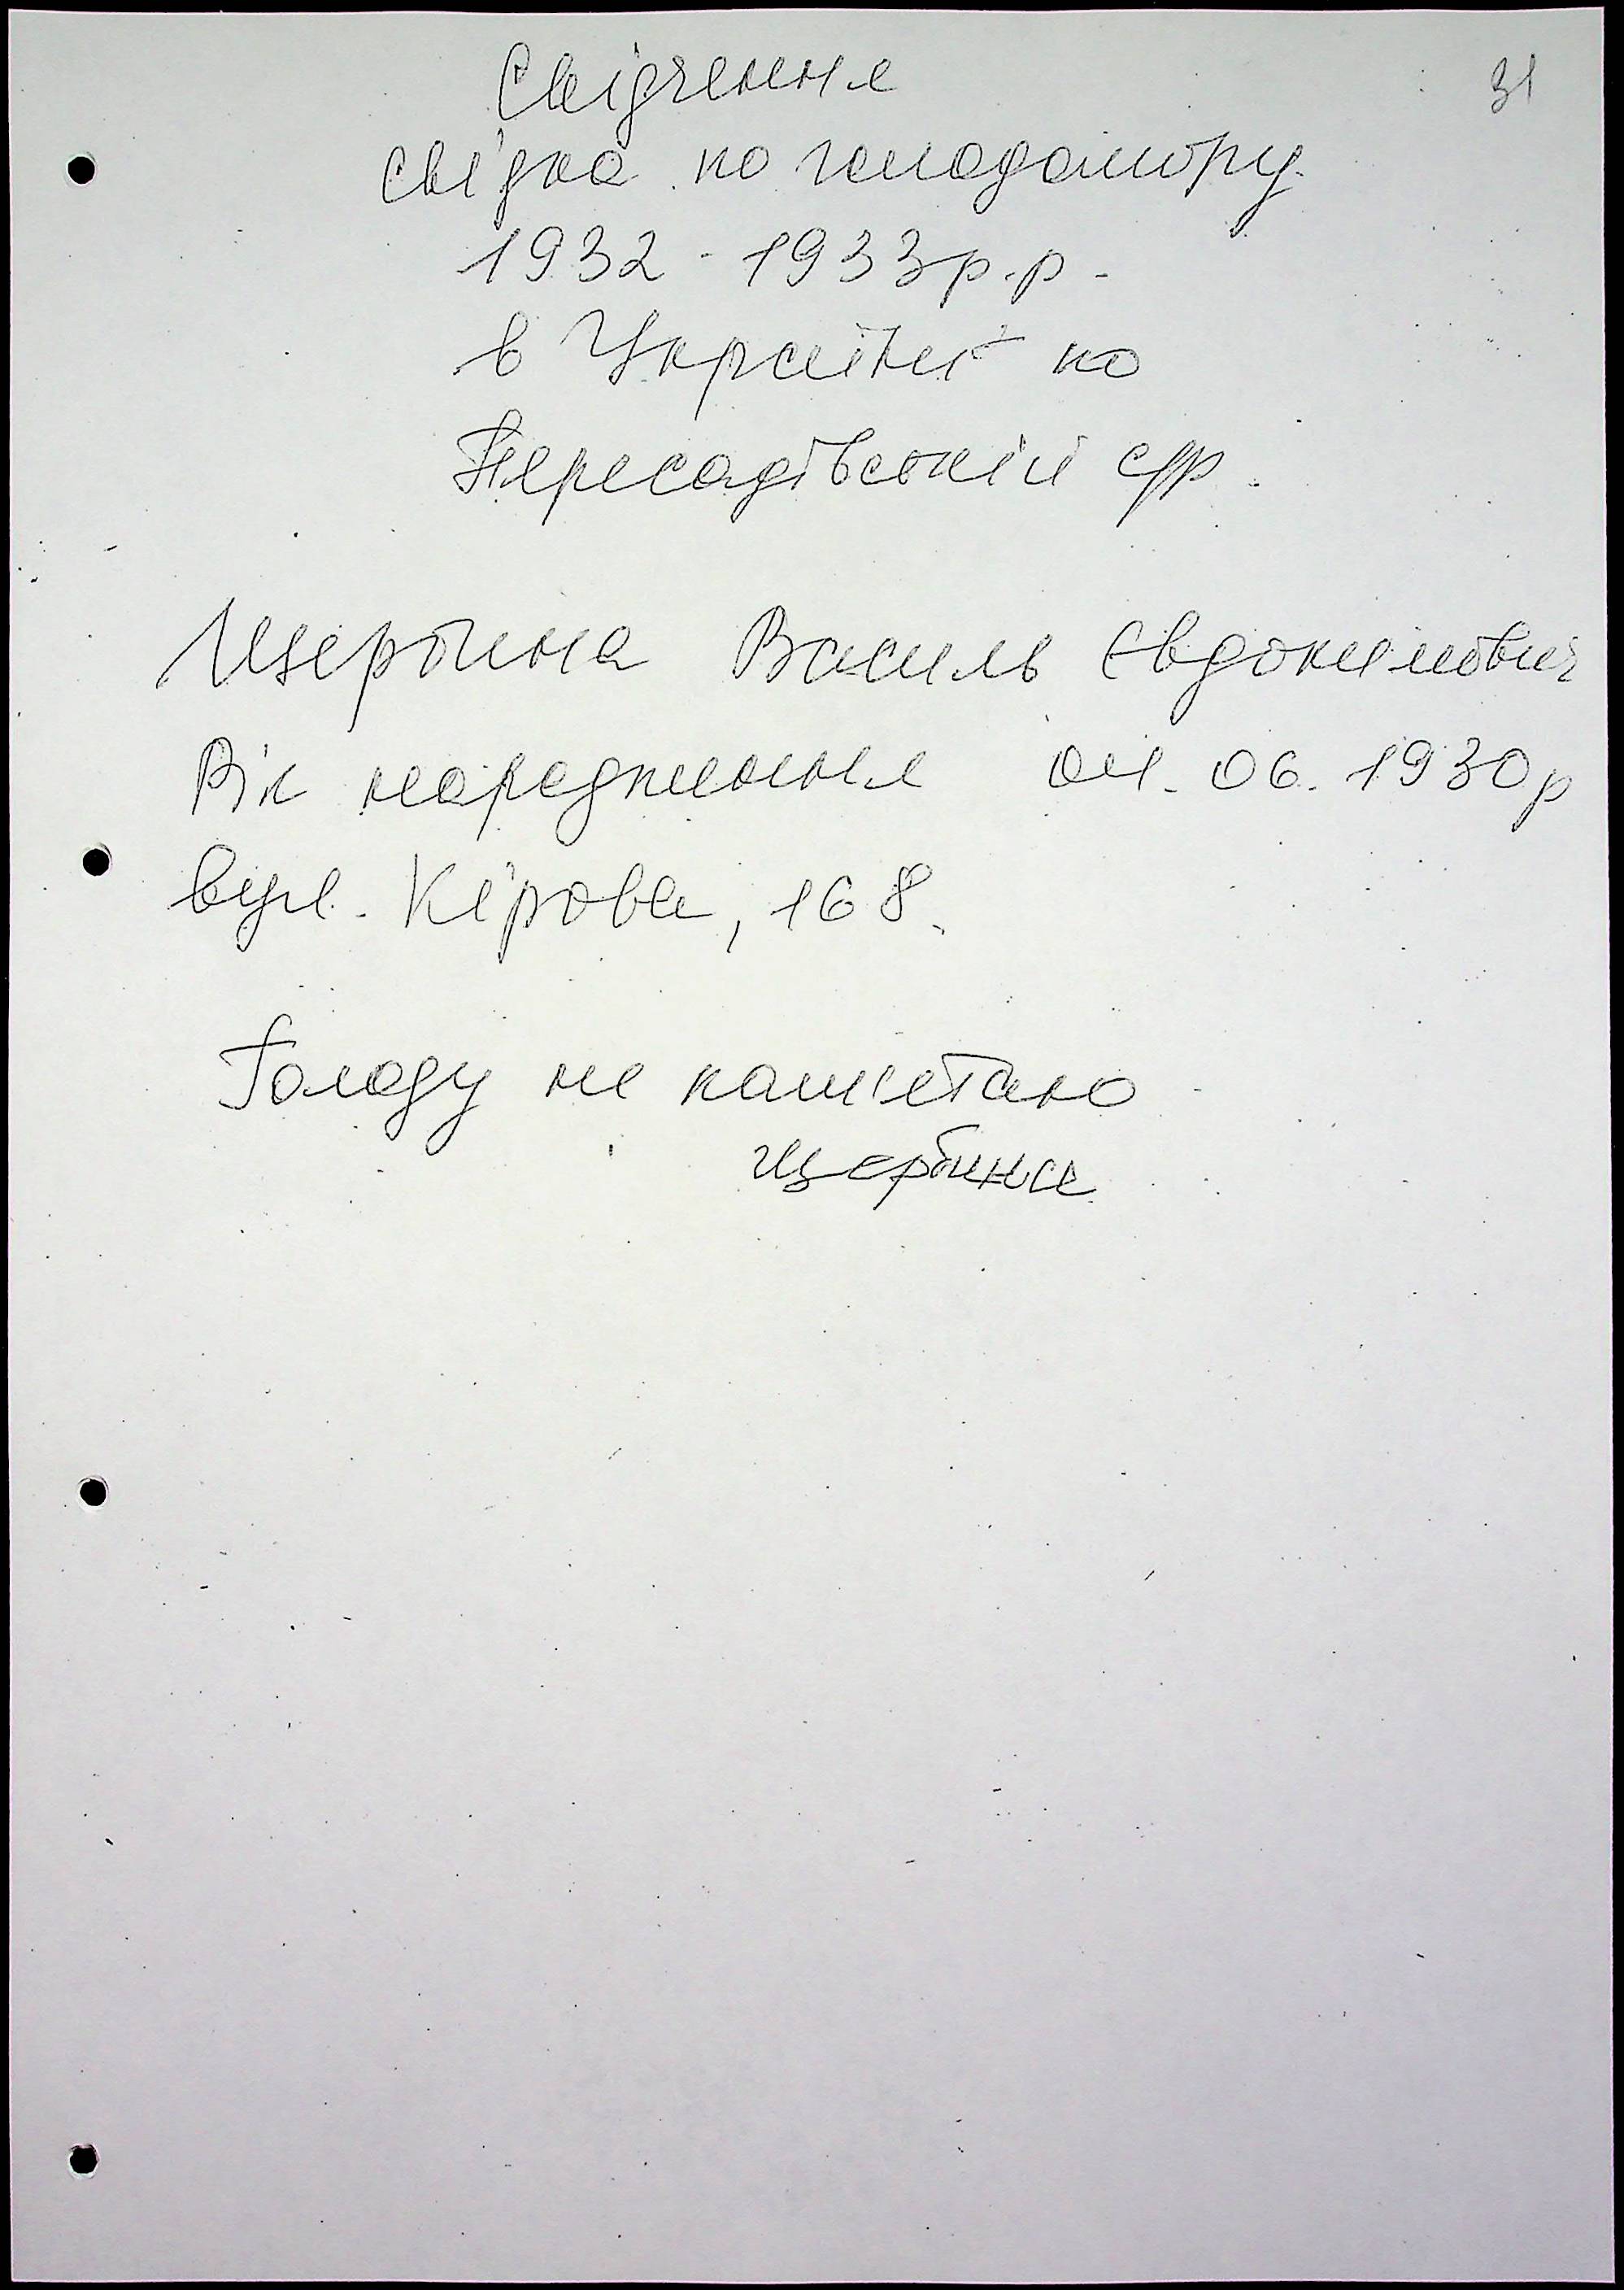 31
Свідчення
свідка по голодомору
1932 - 1933 р.р.
в Україні по
Пересадівській с/р.
Щербина Василь Євдокимович
Рік народження 04. 06. 1930р
вул. Кірова, 168.
Голоду не пам'ятаю
Щербина